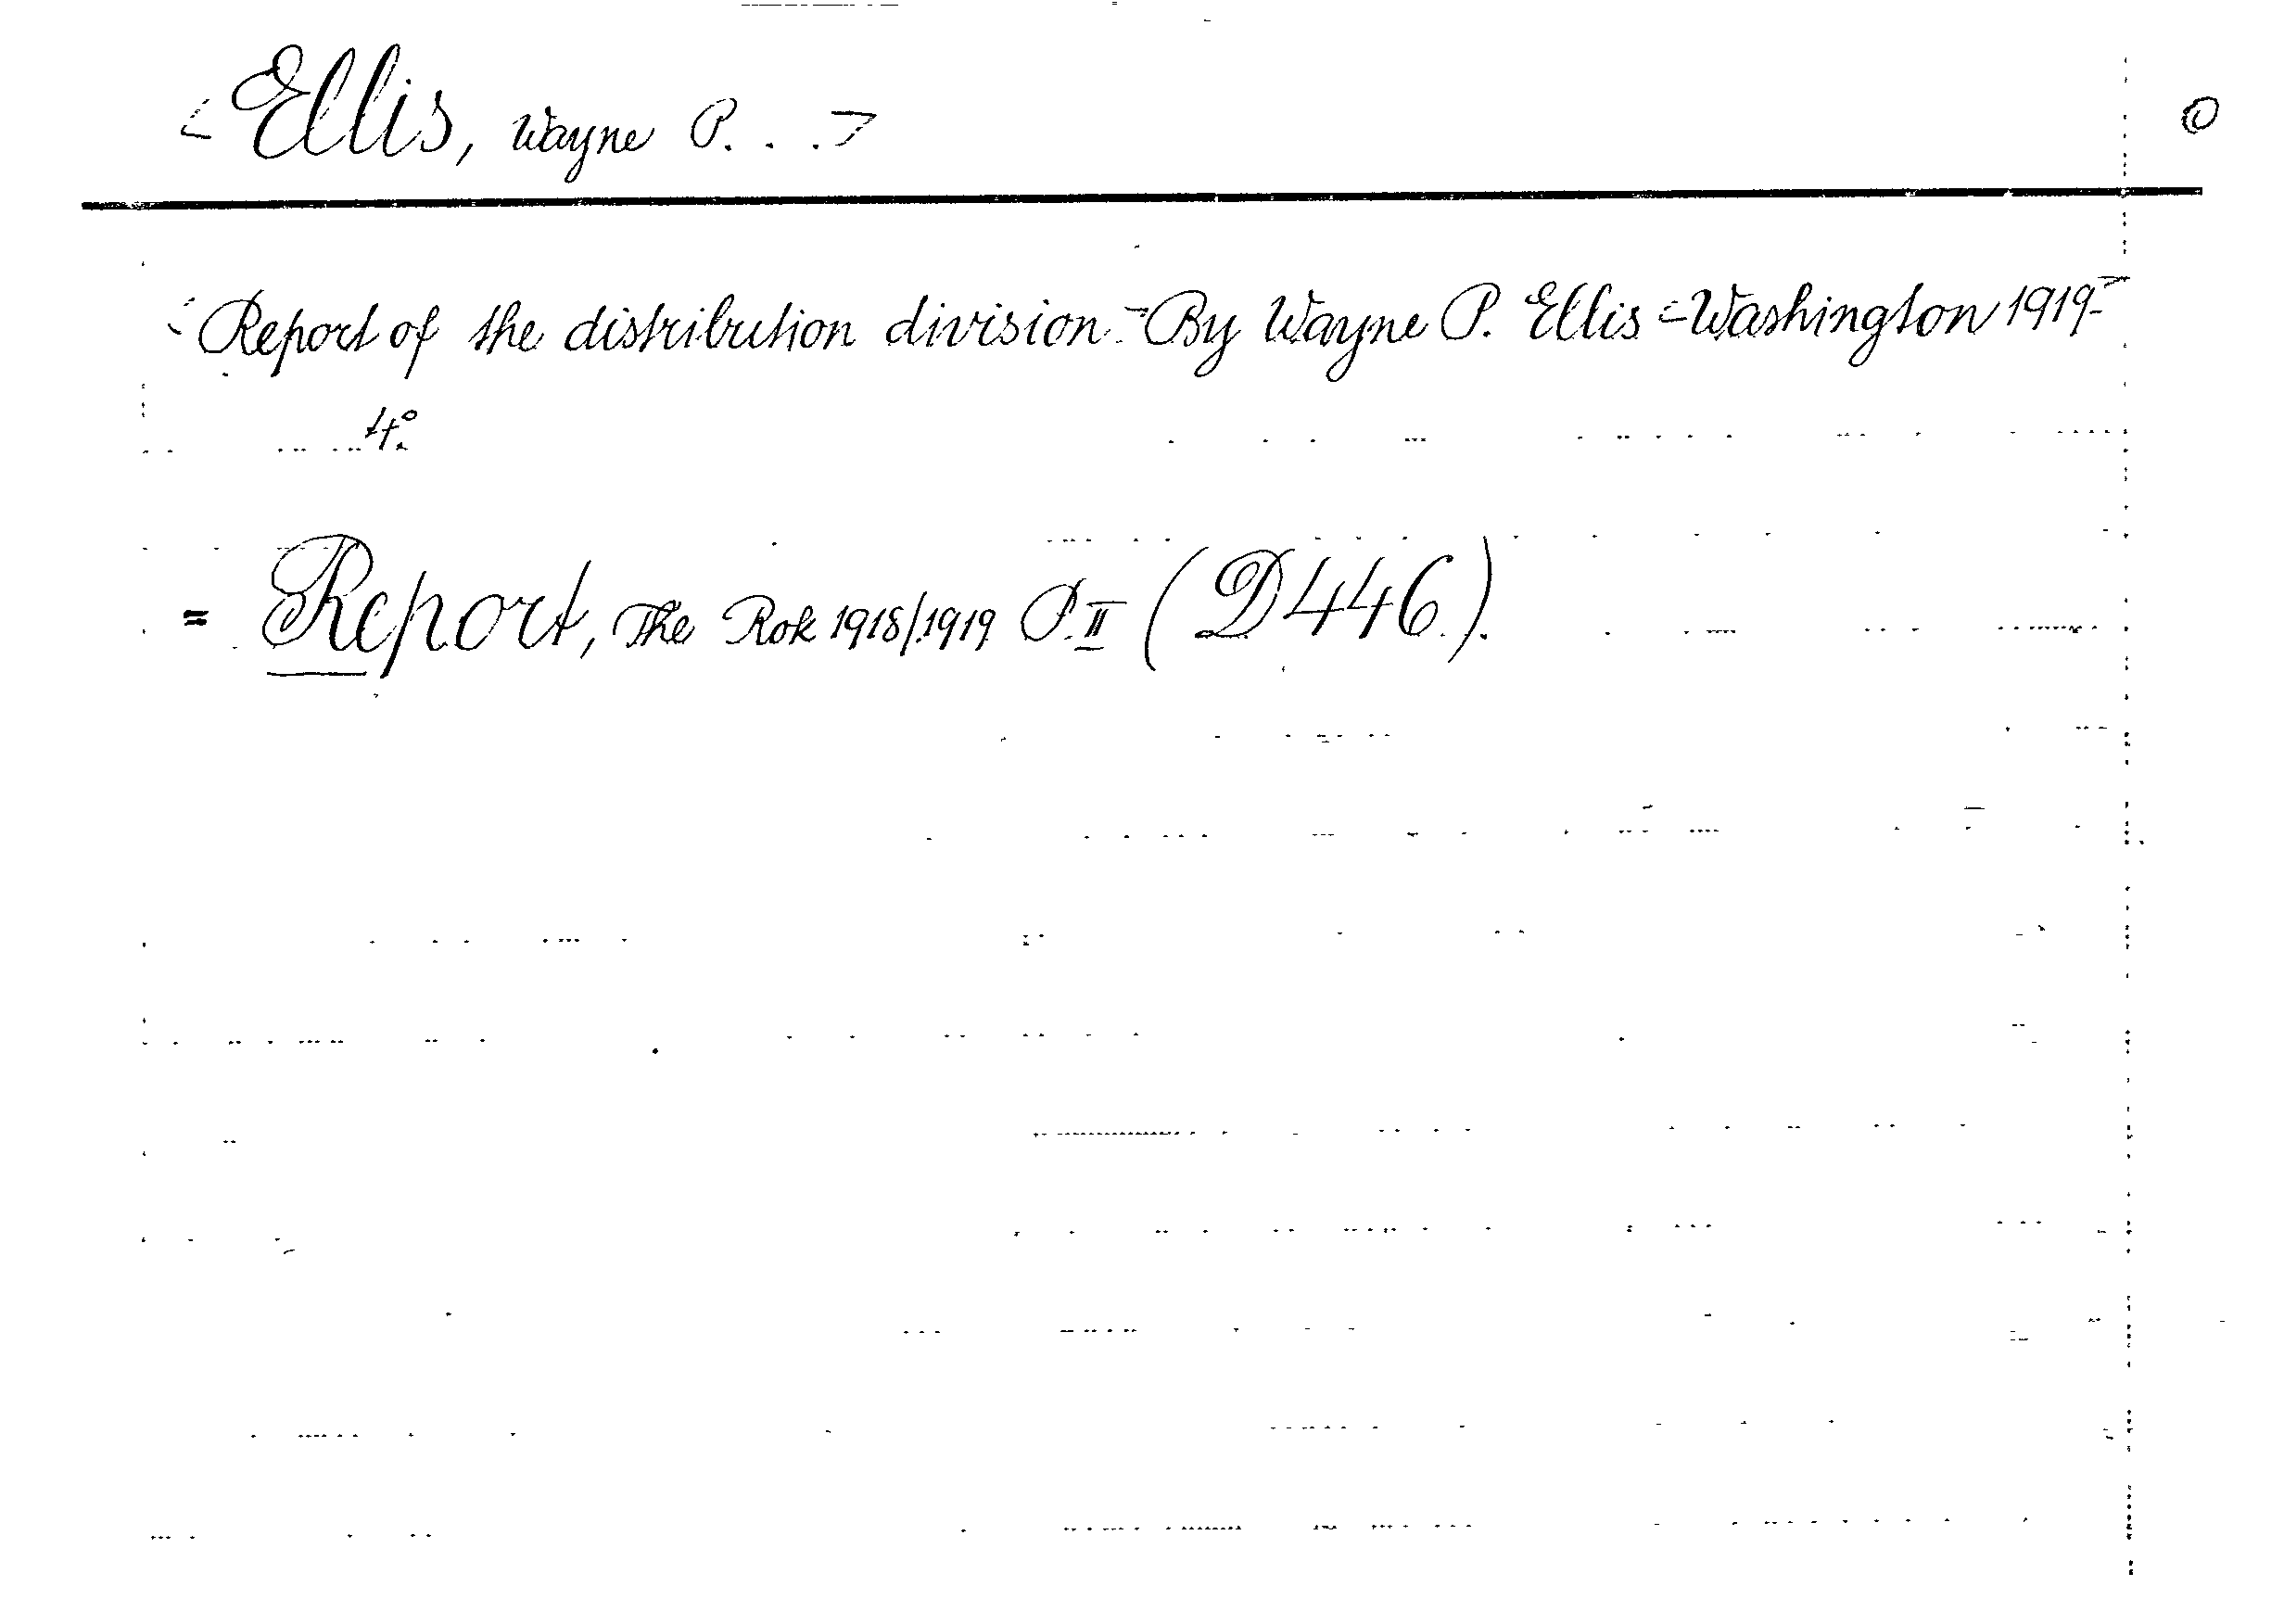 <Ellis, Wayne P. . . > O
<Report of the distribution division.-By Wayne P. Ellis=Washington 1919->
4°.
= Report, The Rok 1918/1919 P.II (D446).